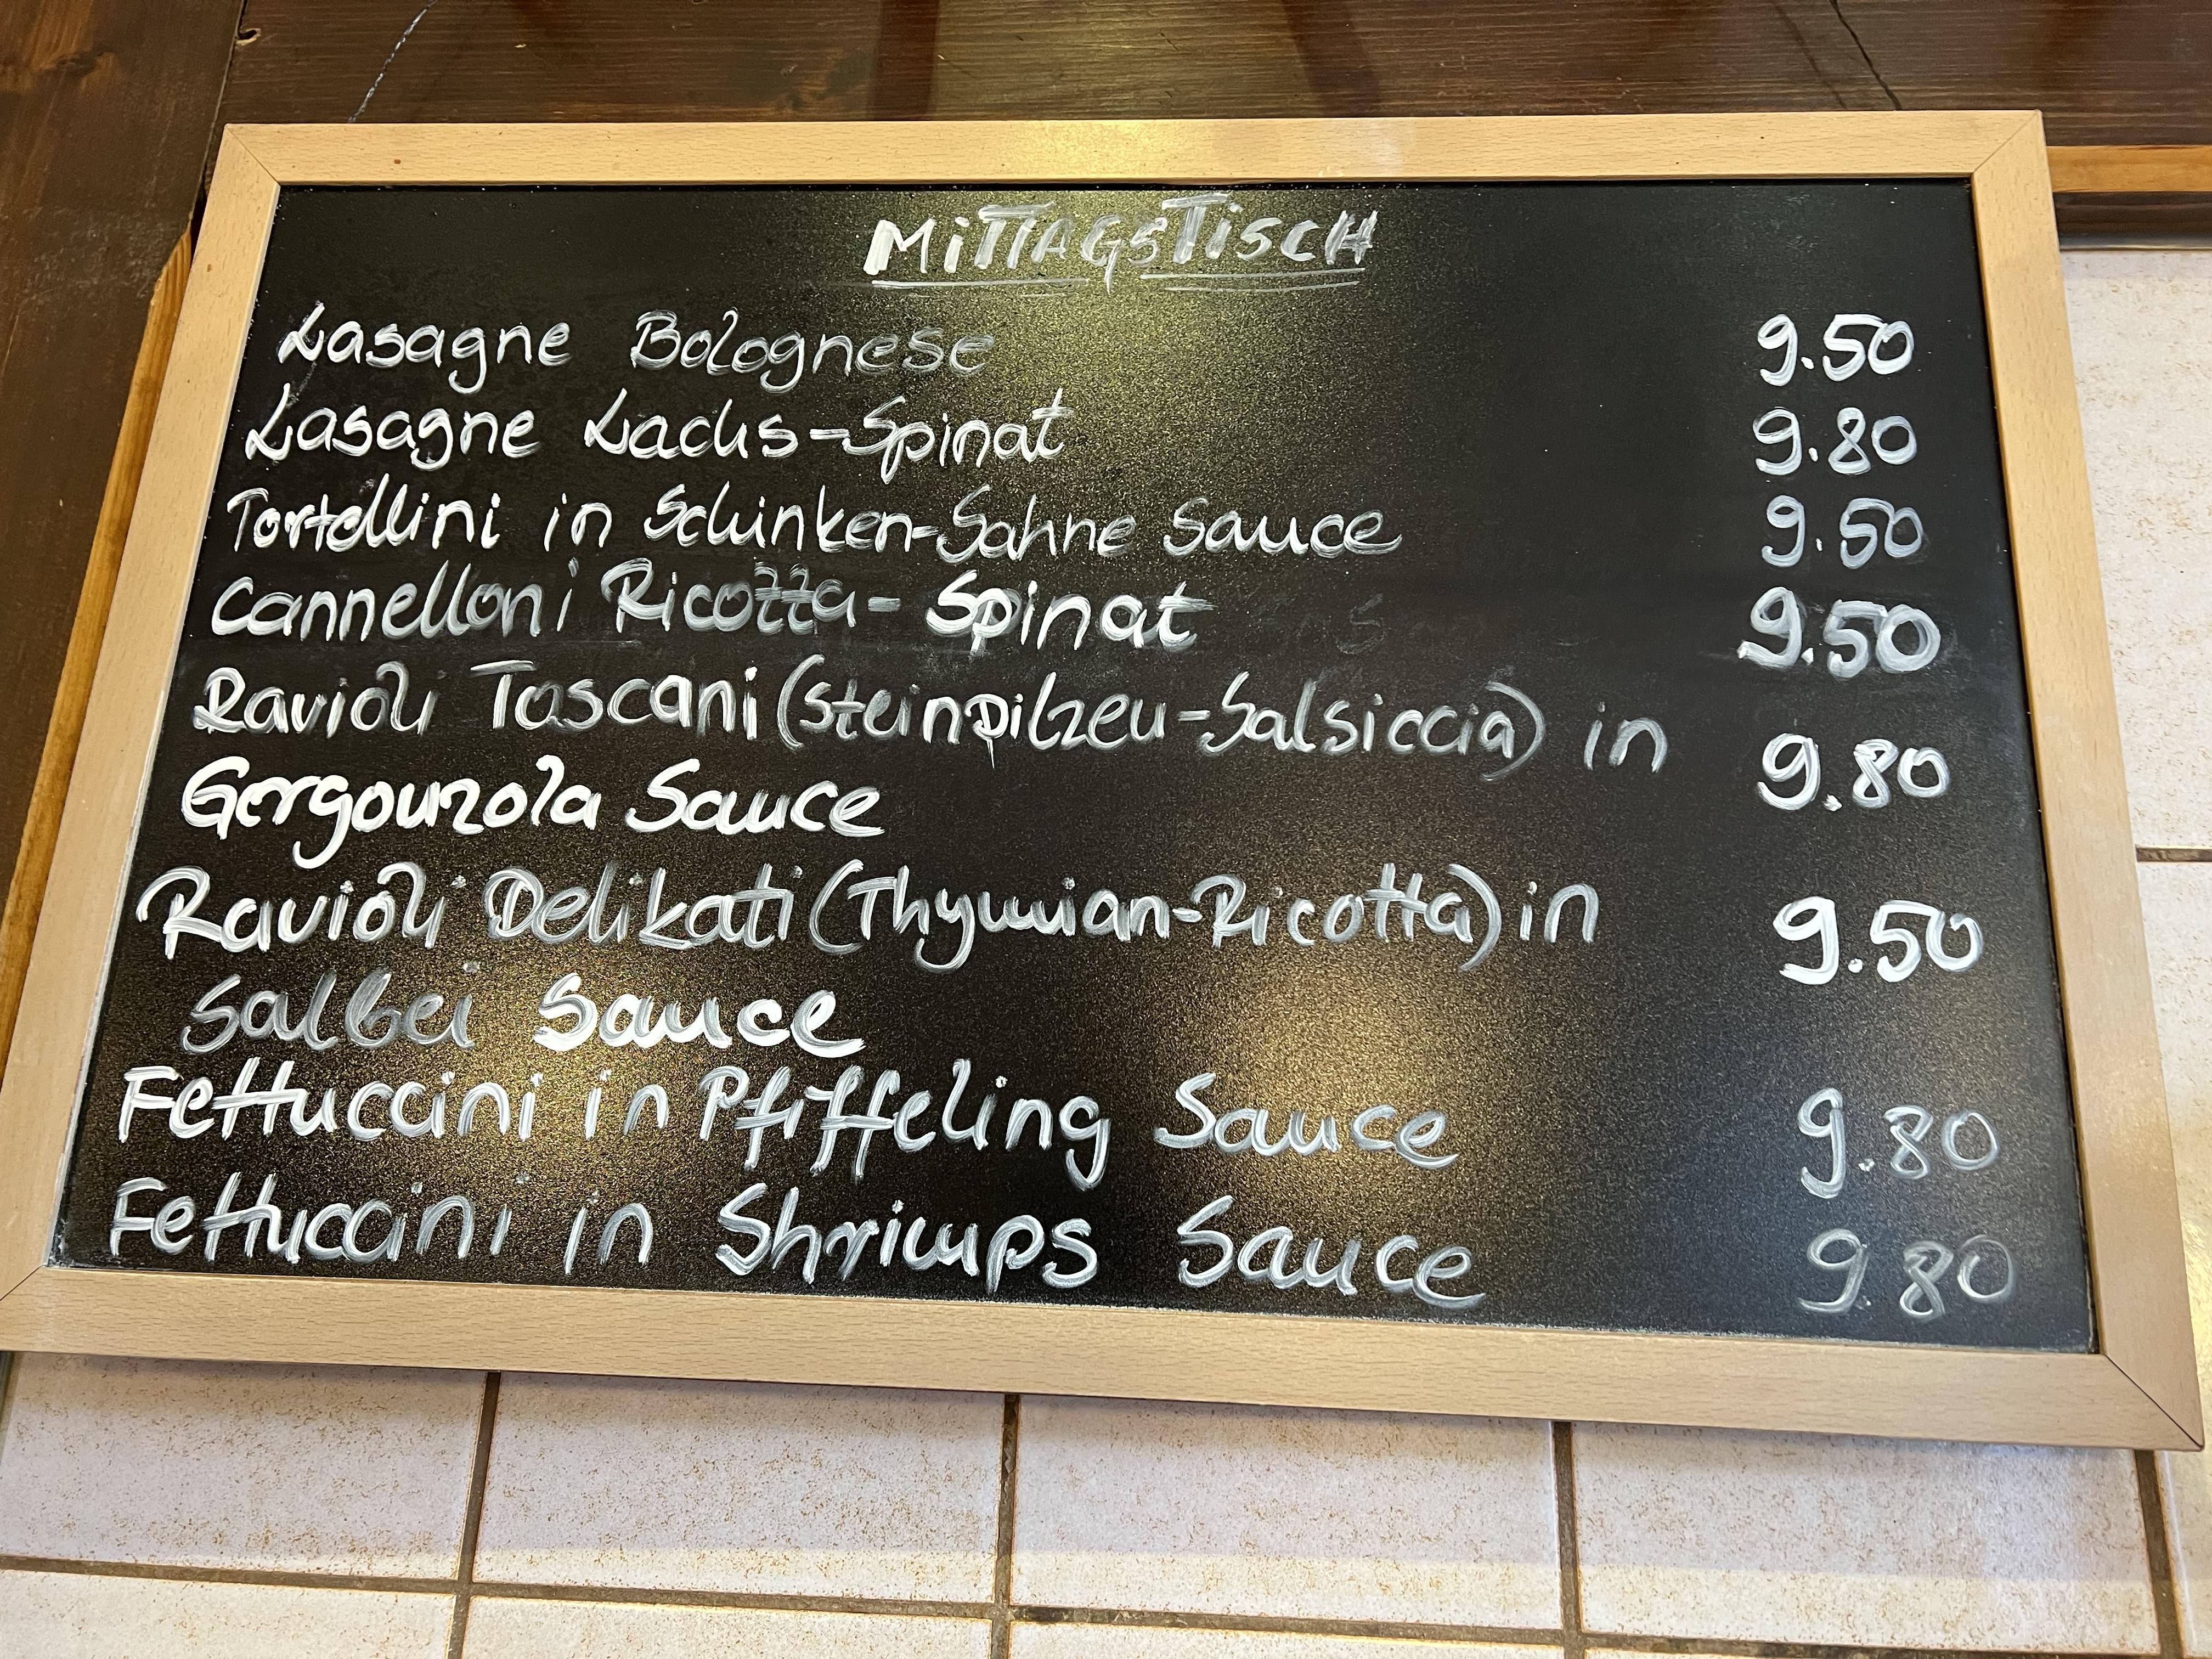 MITTAGSTISCH
Lasagne Bolognese 9.50
Lasagne Lachs-Spinat 9.80
Tortellini in Schinken-Sahne Sauce 9.50
Cannelloni Ricotta-Spinat 9.50
Ravioli Toscani (Steinpilzen-Salsiccia) in
Gorgonzola Sauce 9.80
Ravioli Delikati (Thymian-Ricotta) in 9.50
Salbei Sauce
Fettuccini in Pfifferling Sauce 9.80
Fettuccini in Shrimps Sauce 9.80